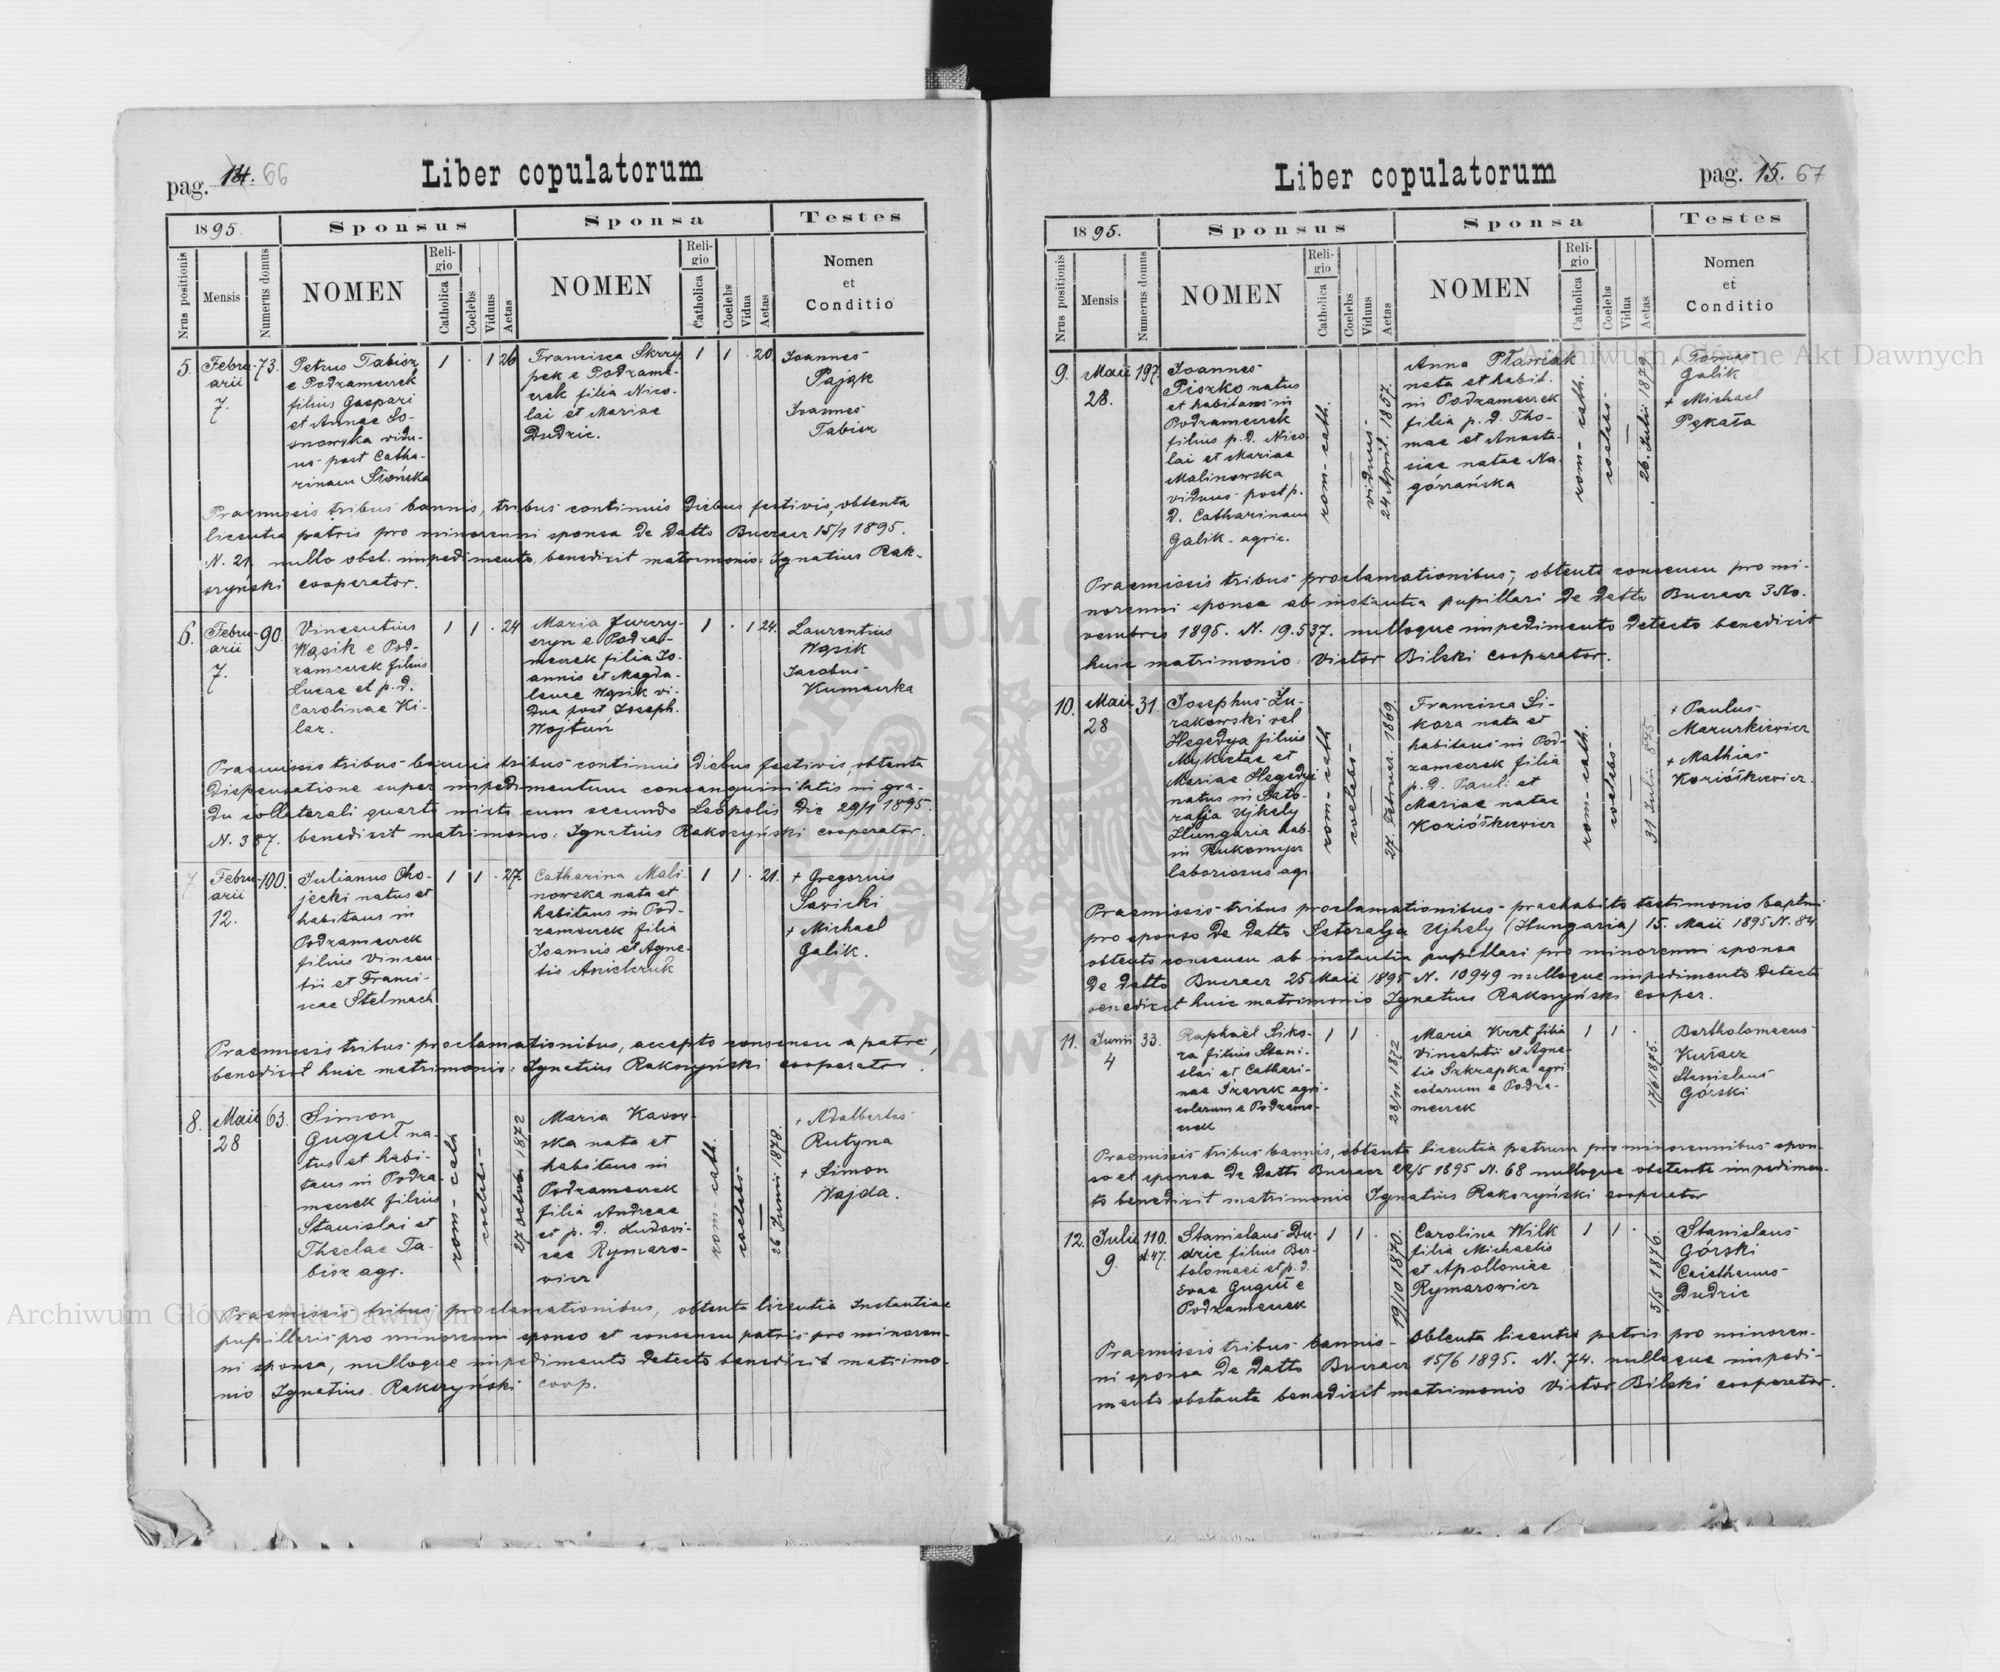 pag. 14. 66
Liber copulatorum
1895.
Sponsus
Sponsa
Testes
Nrus positionis
Mensis
Numerus domus
NOMEN
Religio
Catholica
Coelebs
Viduus
Aetas
NOMEN
Religio
Catholica
Coelebs
Vidua
Aetas
Nomen
et
Conditio
5. Febru-
arii
7.
73.
Petrus Tabisz
e Podzameczek
filius Gaspari
et Annae So-
snowska vidu-
us post Catha-
rinam Słońska
1 . 1 26
Francisca Skrzy
pek e Podzame-
czek filia Nico-
lai et Mariae
Dudzic.
1 1 . 20.
Joannes
Pająk
Joannes
Tabisz
Praemissis tribus bannis, tribus continuis diebus festivis, obtenta
licentia patris pro minorenni sponsa de datto Buczacz 15/1 1895.
N. 21 nullo obst. impedimento, benedixit matrimonio: Ignatius Rak-
szyński cooperator.
6. Febru-
arii
7.
90.
Vincentius
Wąsik e Pod-
zameczek filius
Lucae et p. d.
Carolinae Ki-
laz.
1 1 . 24
Maria Jurczy-
czyn e Podza-
meczek filia Jo-
annis et Magda-
lenae Wąsik vi-
dua post Joseph.
Wojtuń
1 . 1 24.
Laurentius
Wąsik
Jacobus
Praemissis tribus bannis tribus continuis diebus festivis, obtenta
dispensatione super impedimentum consanguinitatis in gra-
du collaterali quarto mixto cum secundo Leopolis die 29/1 1895.
N. 387. benedixit matrimonio: Ignatius Rakszyński cooperator.
7 Febru-
arii
12.
100.
Julianus Cho-
jecki natus et
habitans in
Podzameczek
filius Vincen-
tii et Franci-
scae Stelmach
1 1 . 27.
Catharina Mali-
nowska nata et
habitans in Pod-
zameczek filia
Joannis et Agne-
tis
1 1 . 21.
+ Gregorius
Sawicki
+ Michael
Galik.
Praemissis tribus proclamationibus, accepto consensu a patre,
benedixit huic matrimonio: Ignatius Rakszyński cooperator.
8. Maii
28
63.
Simon
Guguł na-
tus et habi-
tans in Podza-
meczek filius
Stanislai et
Theclae Ta-
bisz agr.
rom-cath
coelebs
27 octob. 1872
Maria Kawow-
ska nata et
habitans in
Podzameczek
filia Andreae
et p. d. Ludovi-
cae Rymaro-
wicz
rom-cath.
coelebs
26 Junii 1878.
+ Adalbertus
Rutyna
+ Simon
Wajda.
Praemissis tribus proclamationibus, obtenta licentia Instantiae
pupillaris pro minorenni sponso et consensu patris pro minoren-
ni sponsa, nulloque impedimento detecto benedixit matrimo-
nio Ignatius Rakszyński coop.
Liber copulatorum
pag. 15. 67
1895.
Sponsus
Sponsa
Testes
Nrus positionis
Mensis
Numerus domus
NOMEN
Religio
Catholica
Coelebs
Viduus
Aetas
NOMEN
Religio
Catholica
Coelebs
Vidua
Aetas
Nomen
et
Conditio
9. Maii
28.
197
Joannes
Piszko natus
et habitans in
Podzameczek
filius p. d. Nico
lai et Mariae
Malinowska
viduus post p.
d. Catharinam
Galik agric.
rom-cath.
viduus
24 April. 1857.
Anna Pławiak
nata et habit.
in Podzameczek
filia p. d. Tho-
mae et Anasta-
siae natae Na-
górzańska
rom-cath.
coelebs
26. Julii 1879
+ Tomas
Galik
+ Michael
Pękała
Praemissis tribus proclamationibus, obtento consensu pro mi-
norenni sponsa ab instantia pupillari de datto Buczacz 3 No-
vembris 1895. N. 19.537. nulloque impedimento detecto benedixit
huic matrimonio: Victor Bilski cooperator.
10. Maii
28
31.
Josephus Żu-
rakowski vel
Hegedya filius
Mykietae et
Mariae Hegedya
natus in Sato-
ralja Ujhely
Hungaria hab.
in
laboriosus agr
rom-cath
coelebs
27. Februar. 1869
Francisca Si-
kora nata et
habitans in Pod-
zameczek filia
p. d. Pauli et
Mariae natae
Koziółkiewicz
rom-cath.
coelebs
31 Julii 875.
+ Paulus
Mazurkiewicz
+ Mathias
Koziółkiewicz.
Praemissis tribus proclamationibus praehabito testimonio baptismi
pro sponso de datto Satoralja Ujhely (Hungaria) 15. Maii 1895 N. 84
obtento consensu ab instantia pupillari pro minorenni sponsa
de datto Buczacz 25 Maii 1895 N. 10949 nulloque impedimento detecto
benedixit huic matrimonio Ignatius Rakszyński cooper.
11. Junii
4
33.
Raphaël Siko-
ra filius Stani-
slai et Cathari-
nae agri-
colarum e Podzame-
czek
1 1 .
28/11 1872
Maria Kret filia
Vincentii et Agne-
tis Szkrapka agri
colarum e Podza-
meczek
1 1 .
17/6 1875.
Bartholomaeus
Kułacz
Stanislaus
Górski
Praemissis tribus bannis, obtenta licentia patrum pro minorennibus spon-
so et sponsa de datto Buczacz 22/5 1895 N. 68 nulloque obstante impedimen-
to benedixit matrimonio Ignatius Rakszyński cooperator
12. Julii
9.
110.
d. 47.
Stanislaus Du-
dzic filius Bar-
tolomaei et p. d.
Evae Guguł e
Podzameczek
1 1 .
19/10 1870.
Carolina Wilk
filia Michaelis
et Apolloniae
Rymarowicz
1 1 .
5/5 1876.
Stanislaus
Górski
Caiethanus
Dudzic
Praemissis tribus bannis obtenta licentia patris pro minoren-
ni sponsa de datto Buczacz 15/6 1895. N. 74. nulloque impedi-
mento obstante benedixit matrimonio Victor Bilski cooperator.
Archiwum Główne Akt Dawnych
Archiwum Główne Akt Dawnych
ARCHIWUM GŁÓWNE AKT DAWNYCH